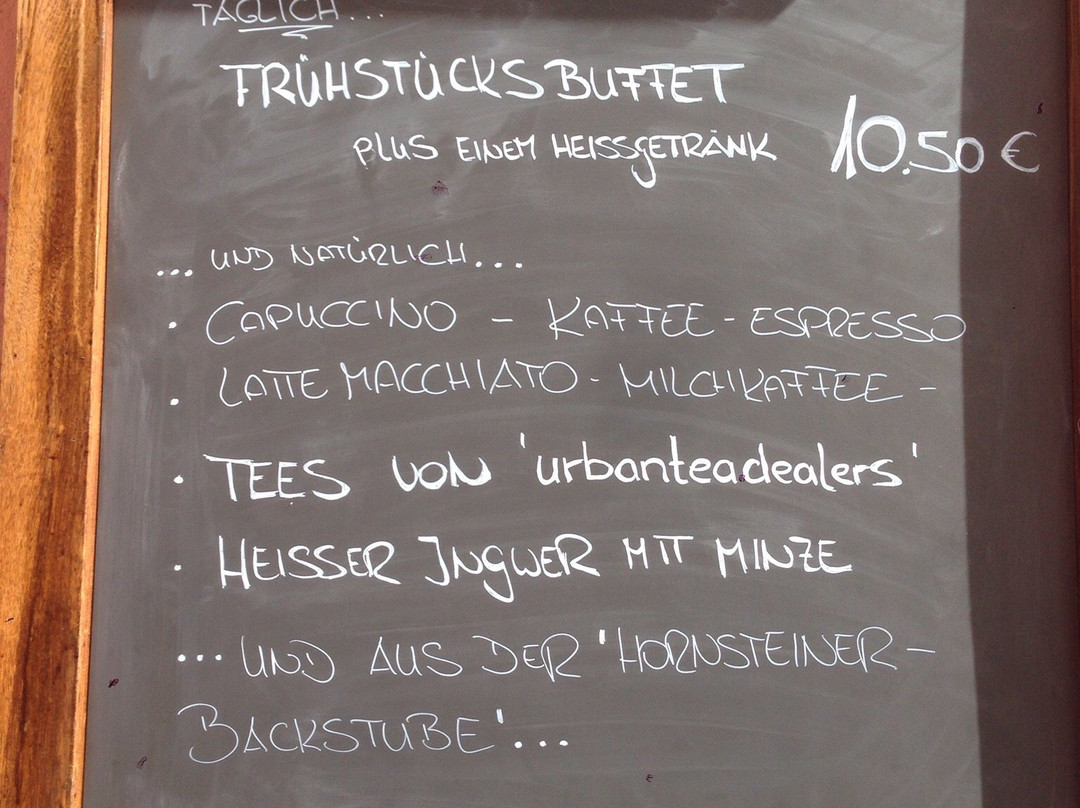 TÄGLICH...
FRÜHSTÜCKSBUFFET
PLUS EINEM HEISSGETRÄNK 10.50 €
... UND NATÜRLICH...
· CAPUCCINO - KAFFEE - ESPRESSO
· LATTE MACCHIATO - MILCHKAFFEE -
· TEES VON 'urbanteadealers'
· HEISSER INGWER MIT MINZE
... UND AUS DER 'HORNSTEINER-
BACKSTUBE'...